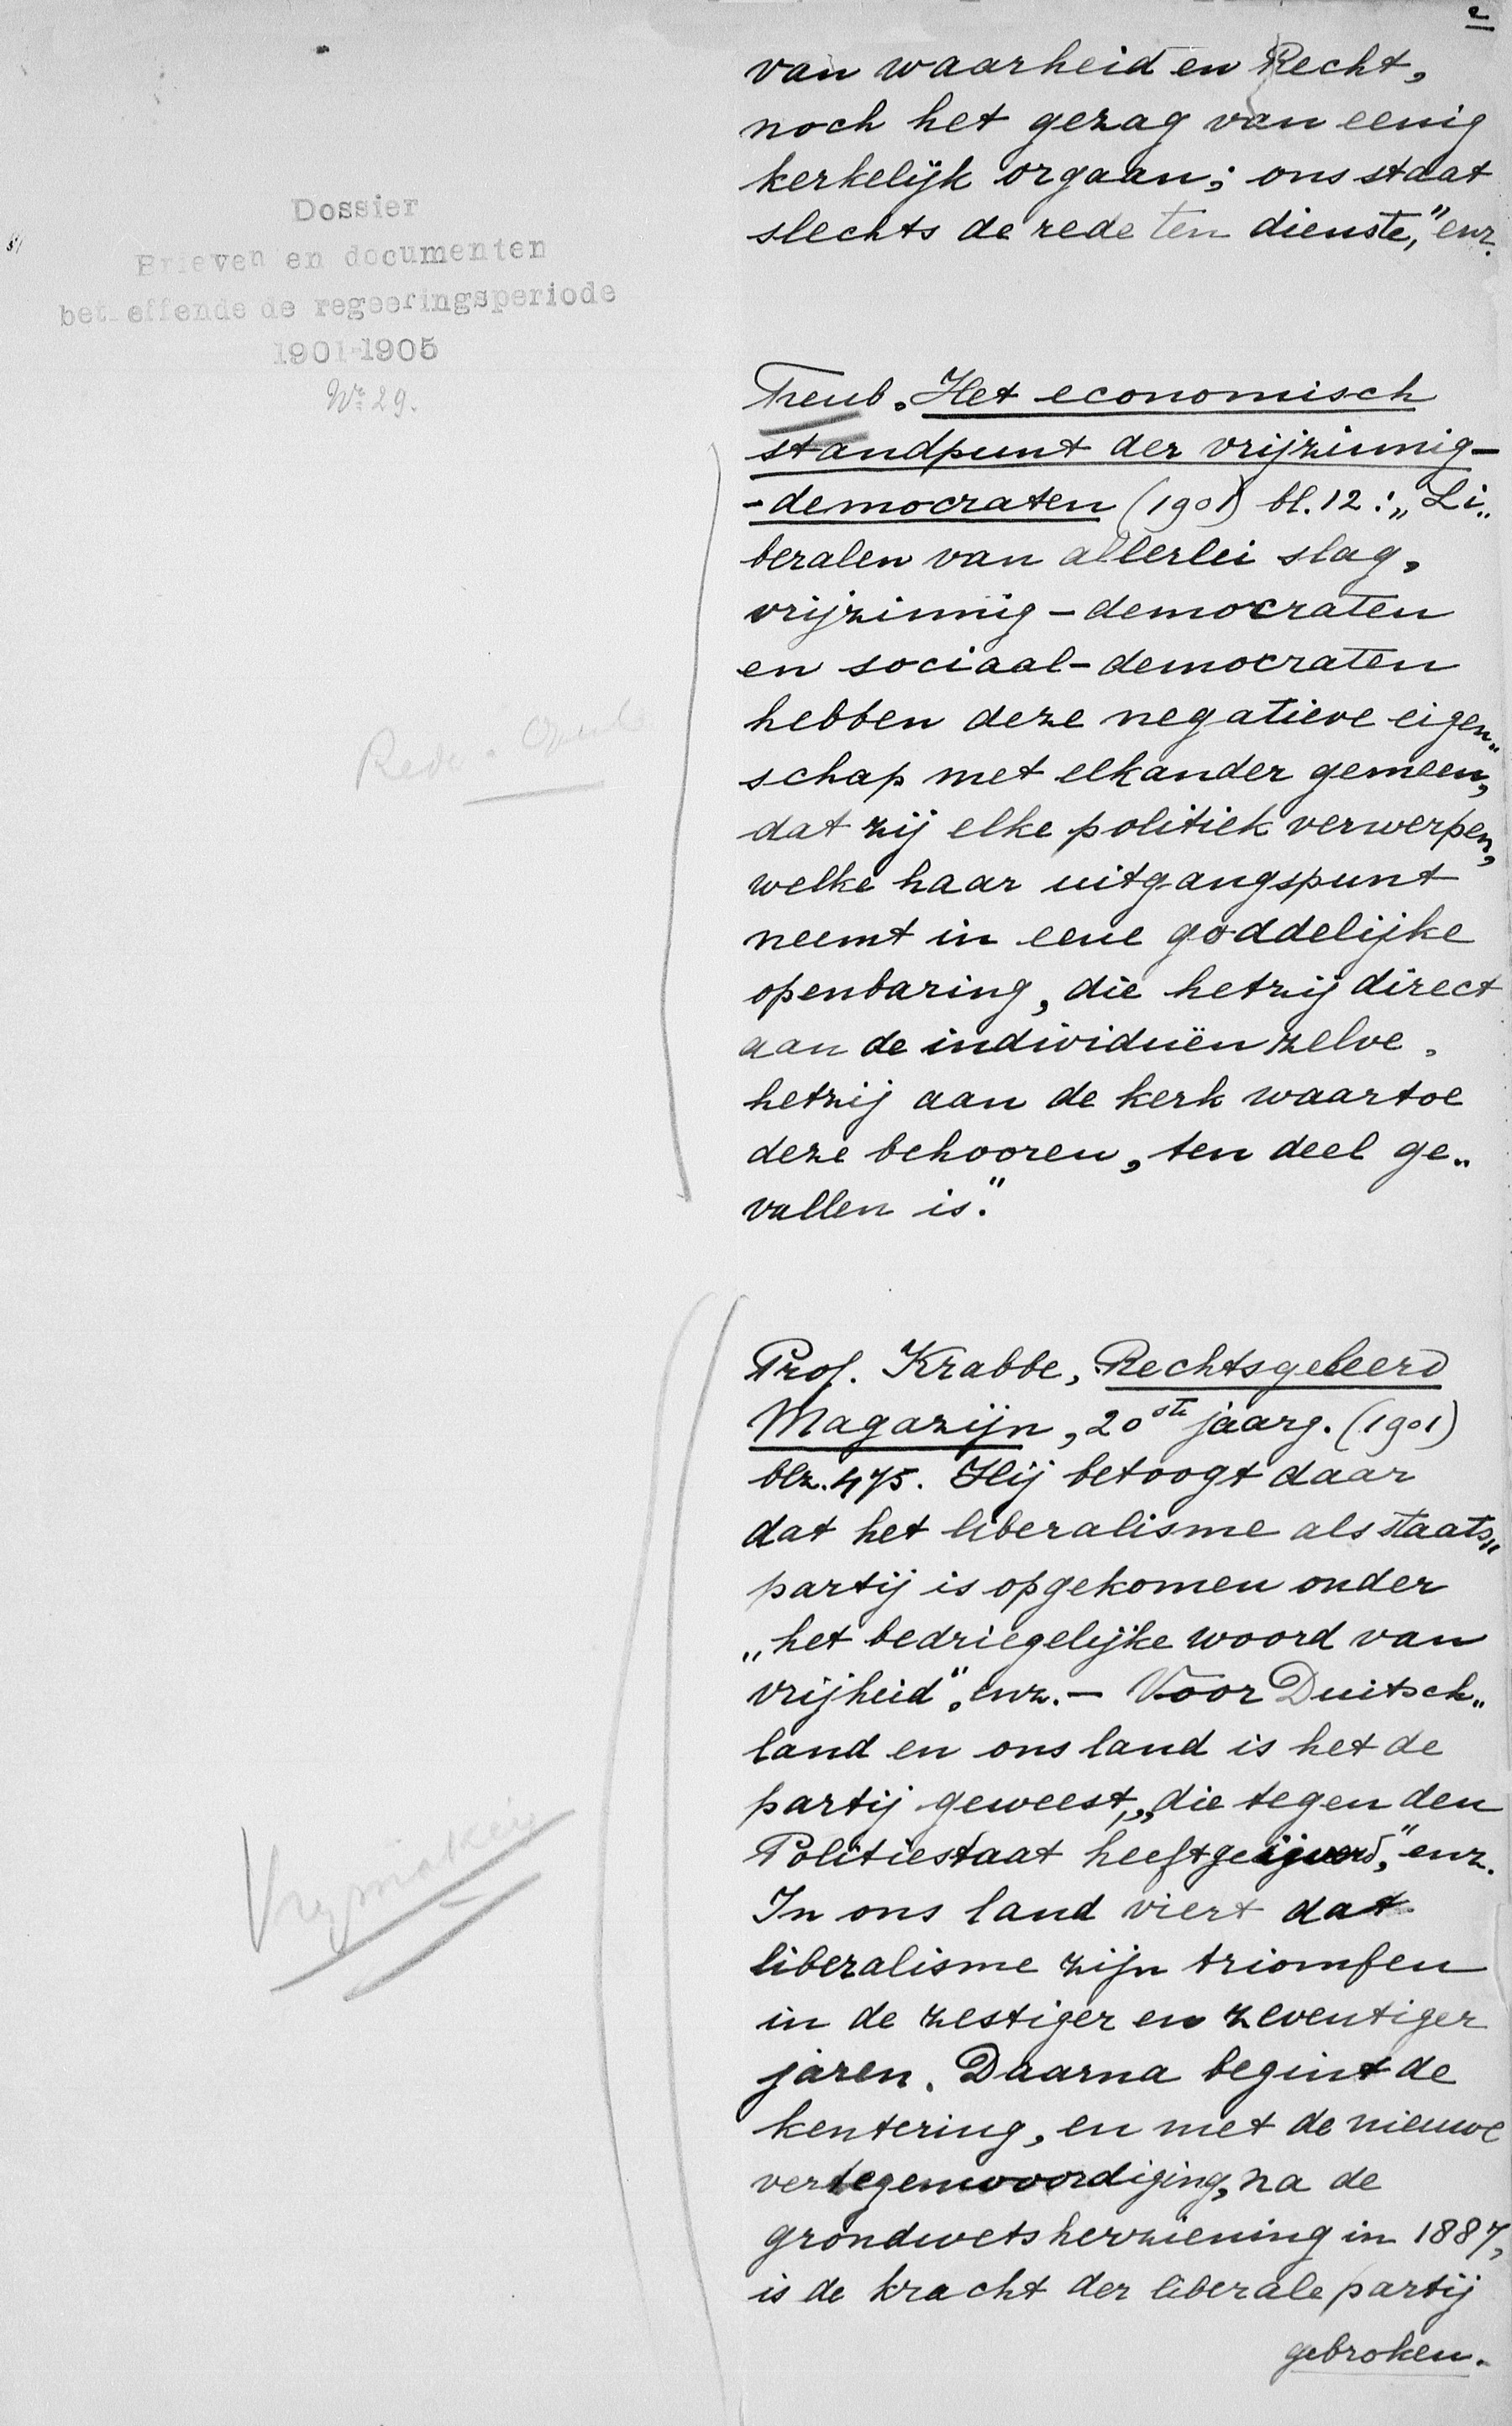 2
van waarheid en Recht,
noch het gezag van eenig
kerkelijk orgaan; ons staat
slechts de rede ten dienste," enz.
Dossier
Brieven en documenten
bet effende de regeeringsperiode
1901-1905
No 29.
Treub. Het economisch
standpunt der vrijzinnig-
-democraten (1901) bl. 12: „Li„
beralen van allerlei slag,
vrijzinnig-democraten
en sociaal-democraten
hebben deze negatieve eigen„
schap met elkander gemeen,
dat zij elke politiek verwerpen,
welke haar uitgangspunt
neemt in eene goddelijke
openbaring, die hetzij direct
aan de individuën zelve,
hetzij aan de kerk waartoe
deze behooren, ten deel ge„
vallen is."
Rede
Prof. Krabbe, Rechtsgeleerd
Magazijn, 20ste jaarg. (1901)
blz. 475. Hij betoogt daar
dat het liberalisme als staats„
partij is opgekomen onder
„het bedriegelijke woord van
vrijheid", enz. — Voor Duitsch„
land en ons land is het de
partij geweest, „die tegen den
Politiestaat heeft geijverd," enz.
In ons land viert dat
liberalisme zijn triomfen
in de zestiger en zeventiger
jaren. Daarna begint de
kentering, en met de nieuwe
vertegenwoordiging, na de
grondwetsherziening in 1887,
is de kracht der liberale partij
gebroken.